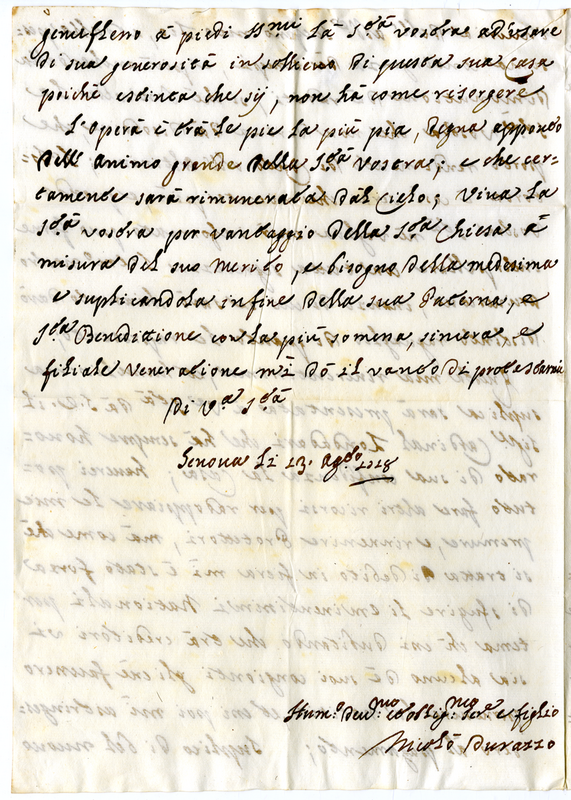 genuflesso à piedi SSmi La Stà vostra ad'usare
di sua generosità in sollievo di questa sua Casa
poichè estinta che sij, non hà come risorgere
L'opera è trà le pie la più pia, degna appunto
dell'animo grande della Stà Vostra; e che cer-
tamente sarà rimunerata dal Cielo; Viva La
Stà vostra per vantaggio della Sta Chiesa à
misura del suo merito, e bisogno della medesima
e suplicandola infine della sua Paterna, e
Sta Benedittione con la più somma, sincera e
filiale veneratione mi dò il vanto di protestarmi
Di Va Stà
Genova li 13. Agsto 1718
Hum.o dev.mo et oblig.mo ser.e e figlio
Nicolò Durazzo